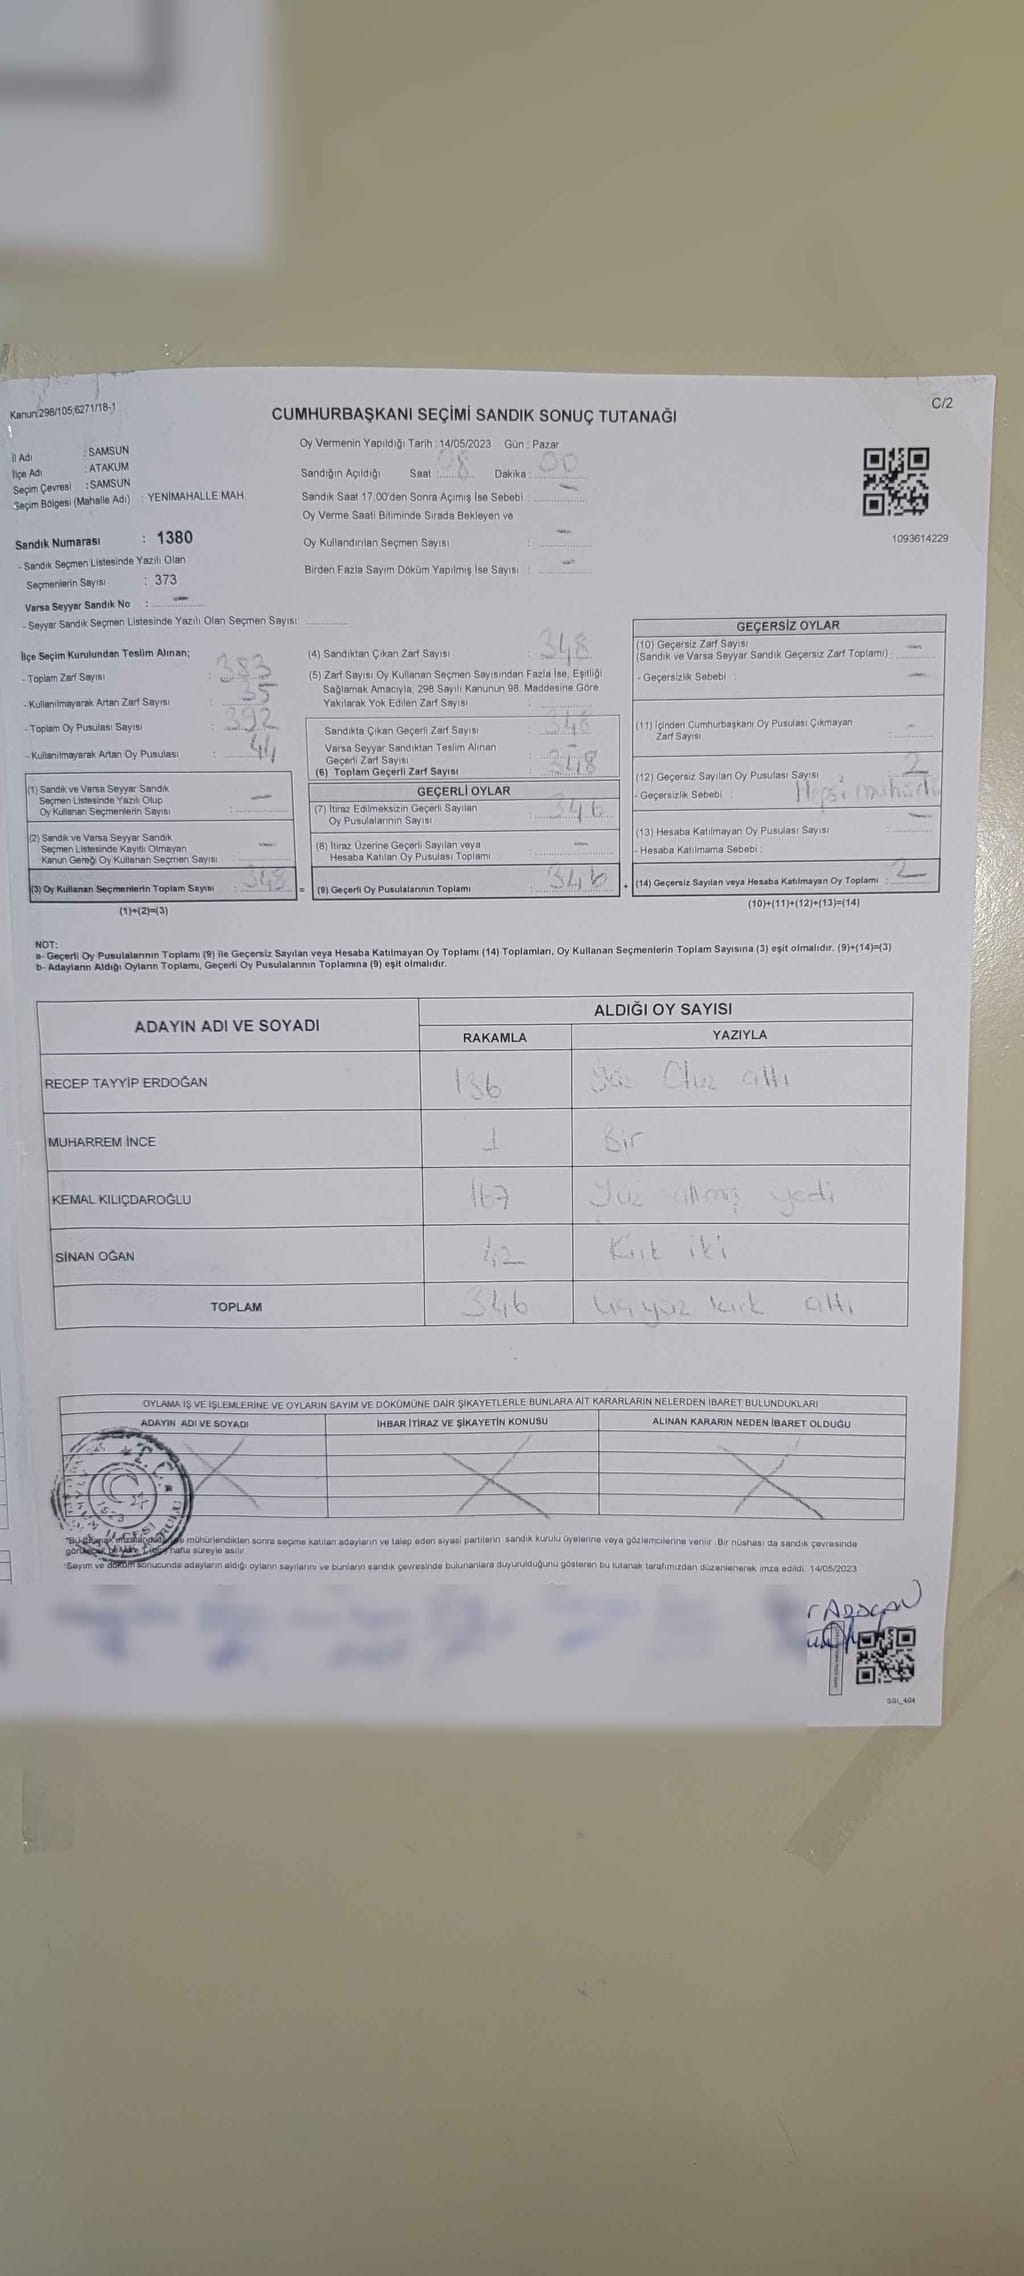 Kanun:298/105;6271/18-1
C/2
CUMHURBAŞKANI SEÇİMİ SANDIK SONUÇ TUTANAĞI
İl Adı : SAMSUN
İlçe Adı : ATAKUM
Seçim Çevresi : SAMSUN
Seçim Bölgesi (Mahalle Adı) : YENİMAHALLE MAH.
Sandık Numarası : 1380
- Sandık Seçmen Listesinde Yazılı Olan
Seçmenlerin Sayısı : 373
Varsa Seyyar Sandık No : -
- Seyyar Sandık Seçmen Listesinde Yazılı Olan Seçmen Sayısı:
Oy Vermenin Yapıldığı Tarih : 14/05/2023 Gün : Pazar
Sandığın Açıldığı Saat : 08 Dakika : 00
Sandık Saat 17:00'den Sonra Açımış İse Sebebi : -
Oy Verme Saati Bitiminde Sırada Bekleyen ve
Oy Kullandırılan Seçmen Sayısı : -
Birden Fazla Sayım Döküm Yapılmış İse Sayısı : -
1093614229
İlçe Seçim Kurulundan Teslim Alınan;
- Toplam Zarf Sayısı : 383
- Kullanılmayarak Artan Zarf Sayısı : 35
- Toplam Oy Pusulası Sayısı : 392
- Kullanılmayarak Artan Oy Pusulası : 44
(1) Sandık ve Varsa Seyyar Sandık
Seçmen Listesinde Yazılı Olup
Oy Kullanan Seçmenlerin Sayısı : -
(2) Sandık ve Varsa Seyyar Sandık
Seçmen Listesinde Kayıtlı Olmayan
Kanun Gereği Oy Kullanan Seçmen Sayısı : -
(3) Oy Kullanan Seçmenlerin Toplam Sayısı : 348 =
(1)+(2)=(3)
(4) Sandıktan Çıkan Zarf Sayısı : 348
(5) Zarf Sayısı Oy Kullanan Seçmen Sayısından Fazla İse, Eşitliği
Sağlamak Amacıyla; 298 Sayılı Kanunun 98. Maddesine Göre
Yakılarak Yok Edilen Zarf Sayısı :
Sandıkta Çıkan Geçerli Zarf Sayısı : 348
Varsa Seyyar Sandıktan Teslim Alınan
Geçerli Zarf Sayısı : -
(6) Toplam Geçerli Zarf Sayısı : 348
GEÇERLİ OYLAR
(7) İtiraz Edilmeksizin Geçerli Sayılan
Oy Pusulalarının Sayısı : 346
(8) İtiraz Üzerine Geçerli Sayılan veya
Hesaba Katılan Oy Pusulası Toplamı : -
(9) Geçerli Oy Pusulalarının Toplamı : 346 +
GEÇERSİZ OYLAR
(10) Geçersiz Zarf Sayısı
(Sandık ve Varsa Seyyar Sandık Geçersiz Zarf Toplamı) : -
- Geçersizlik Sebebi : -
(11) İçinden Cumhurbaşkanı Oy Pusulası Çıkmayan
Zarf Sayısı : -
(12) Geçersiz Sayılan Oy Pusulası Sayısı : 2
- Geçersizlik Sebebi : Hepsi mühürlü
(13) Hesaba Katılmayan Oy Pusulası Sayısı : -
- Hesaba Katılmama Sebebi :
(14) Geçersiz Sayılan veya Hesaba Katılmayan Oy Toplamı : 2
(10)+(11)+(12)+(13)=(14)
NOT:
a- Geçerli Oy Pusulalarının Toplamı (9) ile Geçersiz Sayılan veya Hesaba Katılmayan Oy Toplamı (14) Toplamları, Oy Kullanan Seçmenlerin Toplam Sayısına (3) eşit olmalıdır. (9)+(14)=(3)
b- Adayların Aldığı Oyların Toplamı, Geçerli Oy Pusulalarının Toplamına (9) eşit olmalıdır.
ADAYIN ADI VE SOYADI
ALDIĞI OY SAYISI
RAKAMLA YAZIYLA
RECEP TAYYİP ERDOĞAN 136 Yüz Otuz altı
MUHARREM İNCE 1 Bir
KEMAL KILIÇDAROĞLU 167 Yüz altmış yedi
SİNAN OĞAN 42 Kırk iki
TOPLAM 346 üçyüz kırk altı
OYLAMA İŞ VE İŞLEMLERİNE VE OYLARIN SAYIM VE DÖKÜMÜNE DAİR ŞİKAYETLERLE BUNLARA AİT KARARLARIN NELERDEN İBARET BULUNDUKLARI
ADAYIN ADI VE SOYADI İHBAR İTİRAZ VE ŞİKAYETİN KONUSU ALINAN KARARIN NEDEN İBARET OLDUĞU
T.C.
1923
mühürlendikten sonra seçime katılan adayların ve talep eden siyasi partilerin sandık kurulu üyelerine veya gözlemcilerine verilir. Bir nüshası da sandık çevresinde
hafta süreyle asılır.
Sayım ve döküm sonucunda adayların aldığı oyların sayılarını ve bunların sandık çevresinde bulunanlara duyurulduğunu gösteren bu tutanak tarafımızdan düzenlenerek imza edildi. 14/05/2023
SSI_404